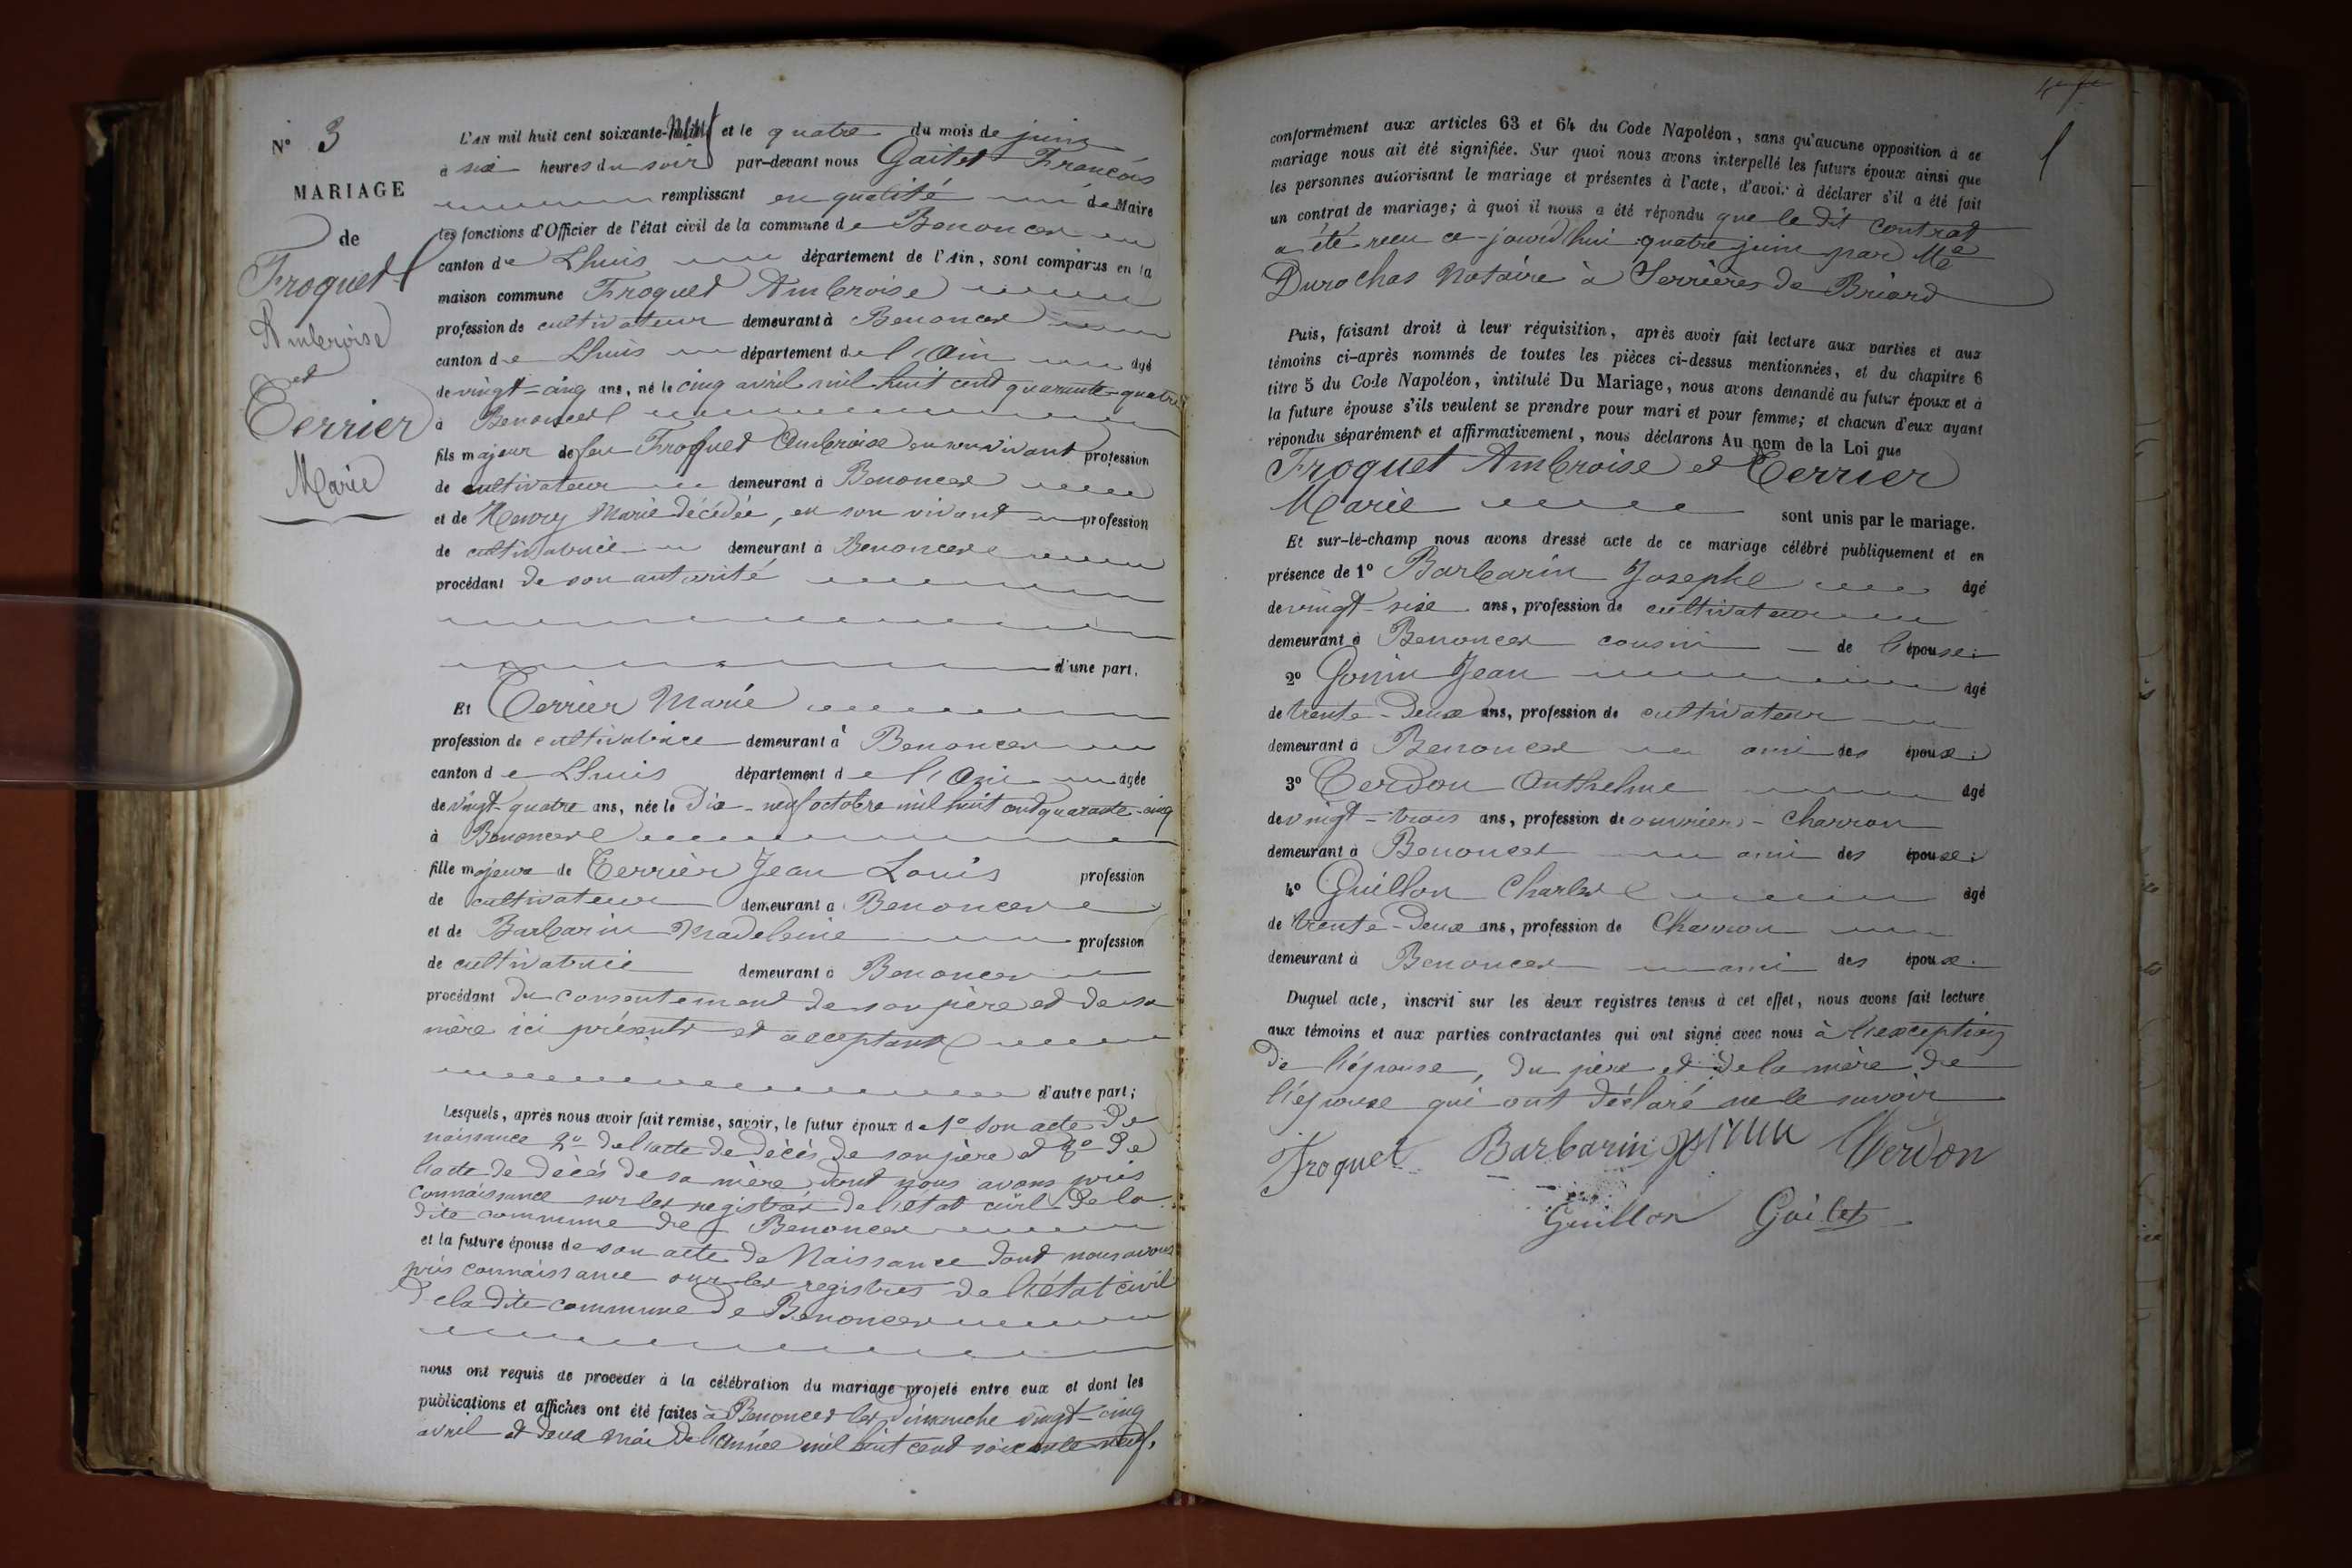 N° 3
MARIAGE
de
Froquet
Ambroise
et
Terrier
Marie
L'AN mil huit cent soixante-neuf et le quatre du mois de juin
à six heures du soir par-devant nous Gaitet François
remplissant en qualité de Maire
les fonctions d'Officier de l'état civil de la commune de Benonces
canton de Lhuis département de l'Ain, sont comparus en la
maison commune Froquet Ambroise
profession de cultivateur demeurant à Benonces
canton de Lhuis département de l'Ain âgé
de vingt-cinq ans, né le cinq avril mil huit cent quarante-quatre
à Benonces
fils majeur de feu Froquet Ambroise en son vivant profession
de cultivateur demeurant à Benonces
et de Henry Marie décédée, en son vivant profession
de cultivatrice demeurant à Benonces
procédant de son autorité
d'une part.
Et Terrier Marie
profession de cultivatrice demeurant à Benonces
canton de Lhuis département de l'Ain âgée
de vingt-quatre ans, née le dix-neuf octobre mil huit cent quarante-cinq
à Benonces
fille majeure de Terrier Jean Louis profession
de cultivateur demeurant à Benonces
et de Barbarin Madeleine profession
de cultivatrice demeurant à Benonces
procédant du consentement de son père et de sa
mère ici présents et acceptants
d'autre part;
Lesquels, après nous avoir fait remise, savoir, le futur époux de 1° son acte de
naissance 2° de l'acte de décès de son père et 3° de
l'acte de décès de sa mère dont nous avons pris
connaissance sur les registres de l'état civil de la
dite commune de Benonces
et la future épouse de son acte de Naissance dont nous avons
pris connaissance sur les registres de l'état civil
de la dite commune de Benonces
nous ont requis de procéder à la célébration du mariage projeté entre eux et dont les
publications et affiches ont été faites à Benonces les Dimanche vingt-cinq
avril et deux Mai de l'année mil huit cent soixante neuf.
conformément aux articles 63 et 64 du Code Napoléon, sans qu'aucune opposition à ce
mariage nous ait été signifiée. Sur quoi nous avons interpellé les futurs époux ainsi que
les personnes autorisant le mariage et présentes à l'acte, d'avoir à déclarer s'il a été fait
un contrat de mariage; à quoi il nous a été répondu que le dit contrat
a été reçu ce-jourd'hui quatre juin par Me
Durochas Notaire à Serrières de Briord
Puis, faisant droit à leur réquisition, après avoir fait lecture aux parties et aux
témoins ci-après nommés de toutes les pièces ci-dessus mentionnées, et du chapitre 6
titre 5 du Code Napoléon, intitulé Du Mariage, nous avons demandé au futur époux et à
la future épouse s'ils veulent se prendre pour mari et pour femme; et chacun d'eux ayant
répondu séparément et affirmativement, nous déclarons Au nom de la Loi que
Froquet Ambroise et Terrier
Marie sont unis par le mariage.
Et sur-le-champ nous avons dressé acte de ce mariage célébré publiquement et en
présence de 1° Barbarin Joseph âgé
de vingt-six ans, profession de cultivateur
demeurant à Benonces cousin de l'épouse;
2° Gonin Jean âgé
de trente-deux ans, profession de cultivateur
demeurant à Benonces ami des époux;
3° Verdon Anthelme âgé
de vingt-trois ans, profession de ouvrier-charron
demeurant à Benonces ami des époux;
4° Guillon Charles âgé
de trente-deux ans, profession de Charron
demeurant à Benonces ami des époux.
Duquel acte, inscrit sur les deux registres tenus à cet effet, nous avons fait lecture
aux témoins et aux parties contractantes qui ont signé avec nous à l'exception
de l'épouse, du père et de la mère de
l'épouse qui ont déclaré ne le savoir
Froquet Barbarin gonin Verdon
Guillon Gaitet